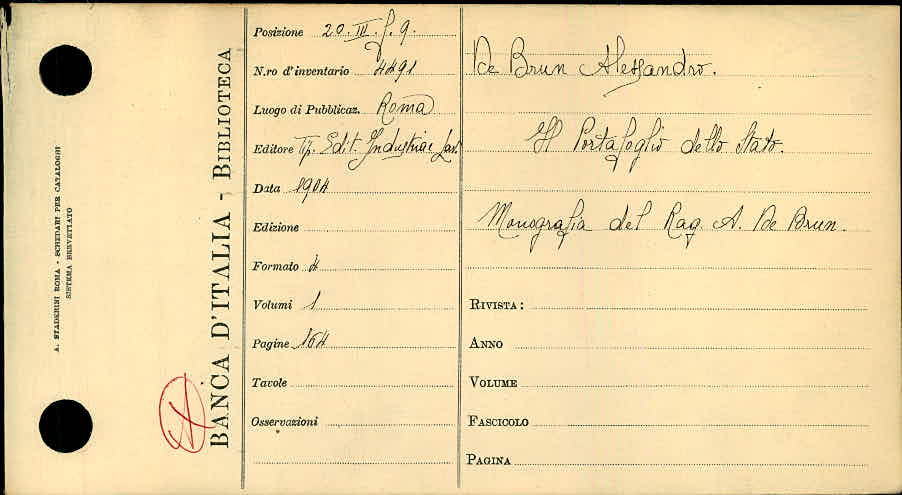 A. STADERINI ROMA - SCHEDARI PER CATALOGHI
SISTEMA BREVETTATO
BANCA D'ITALIA - BIBLIOTECA
Posizione 20. III. f. 9.
N.ro d'inventario 4491
Luogo di Pubblicaz. Roma
Editore Tip. Edit. Industriale
Data 1904
Edizione
Formato 4
Volumi 1
Pagine 164
Tavole
Osservazioni
De Brun Alessandro.
Il Portafoglio dello Stato.
Monografia del Rag. A. De Brun.
RIVISTA:
ANNO
VOLUME
FASCICOLO
PAGINA